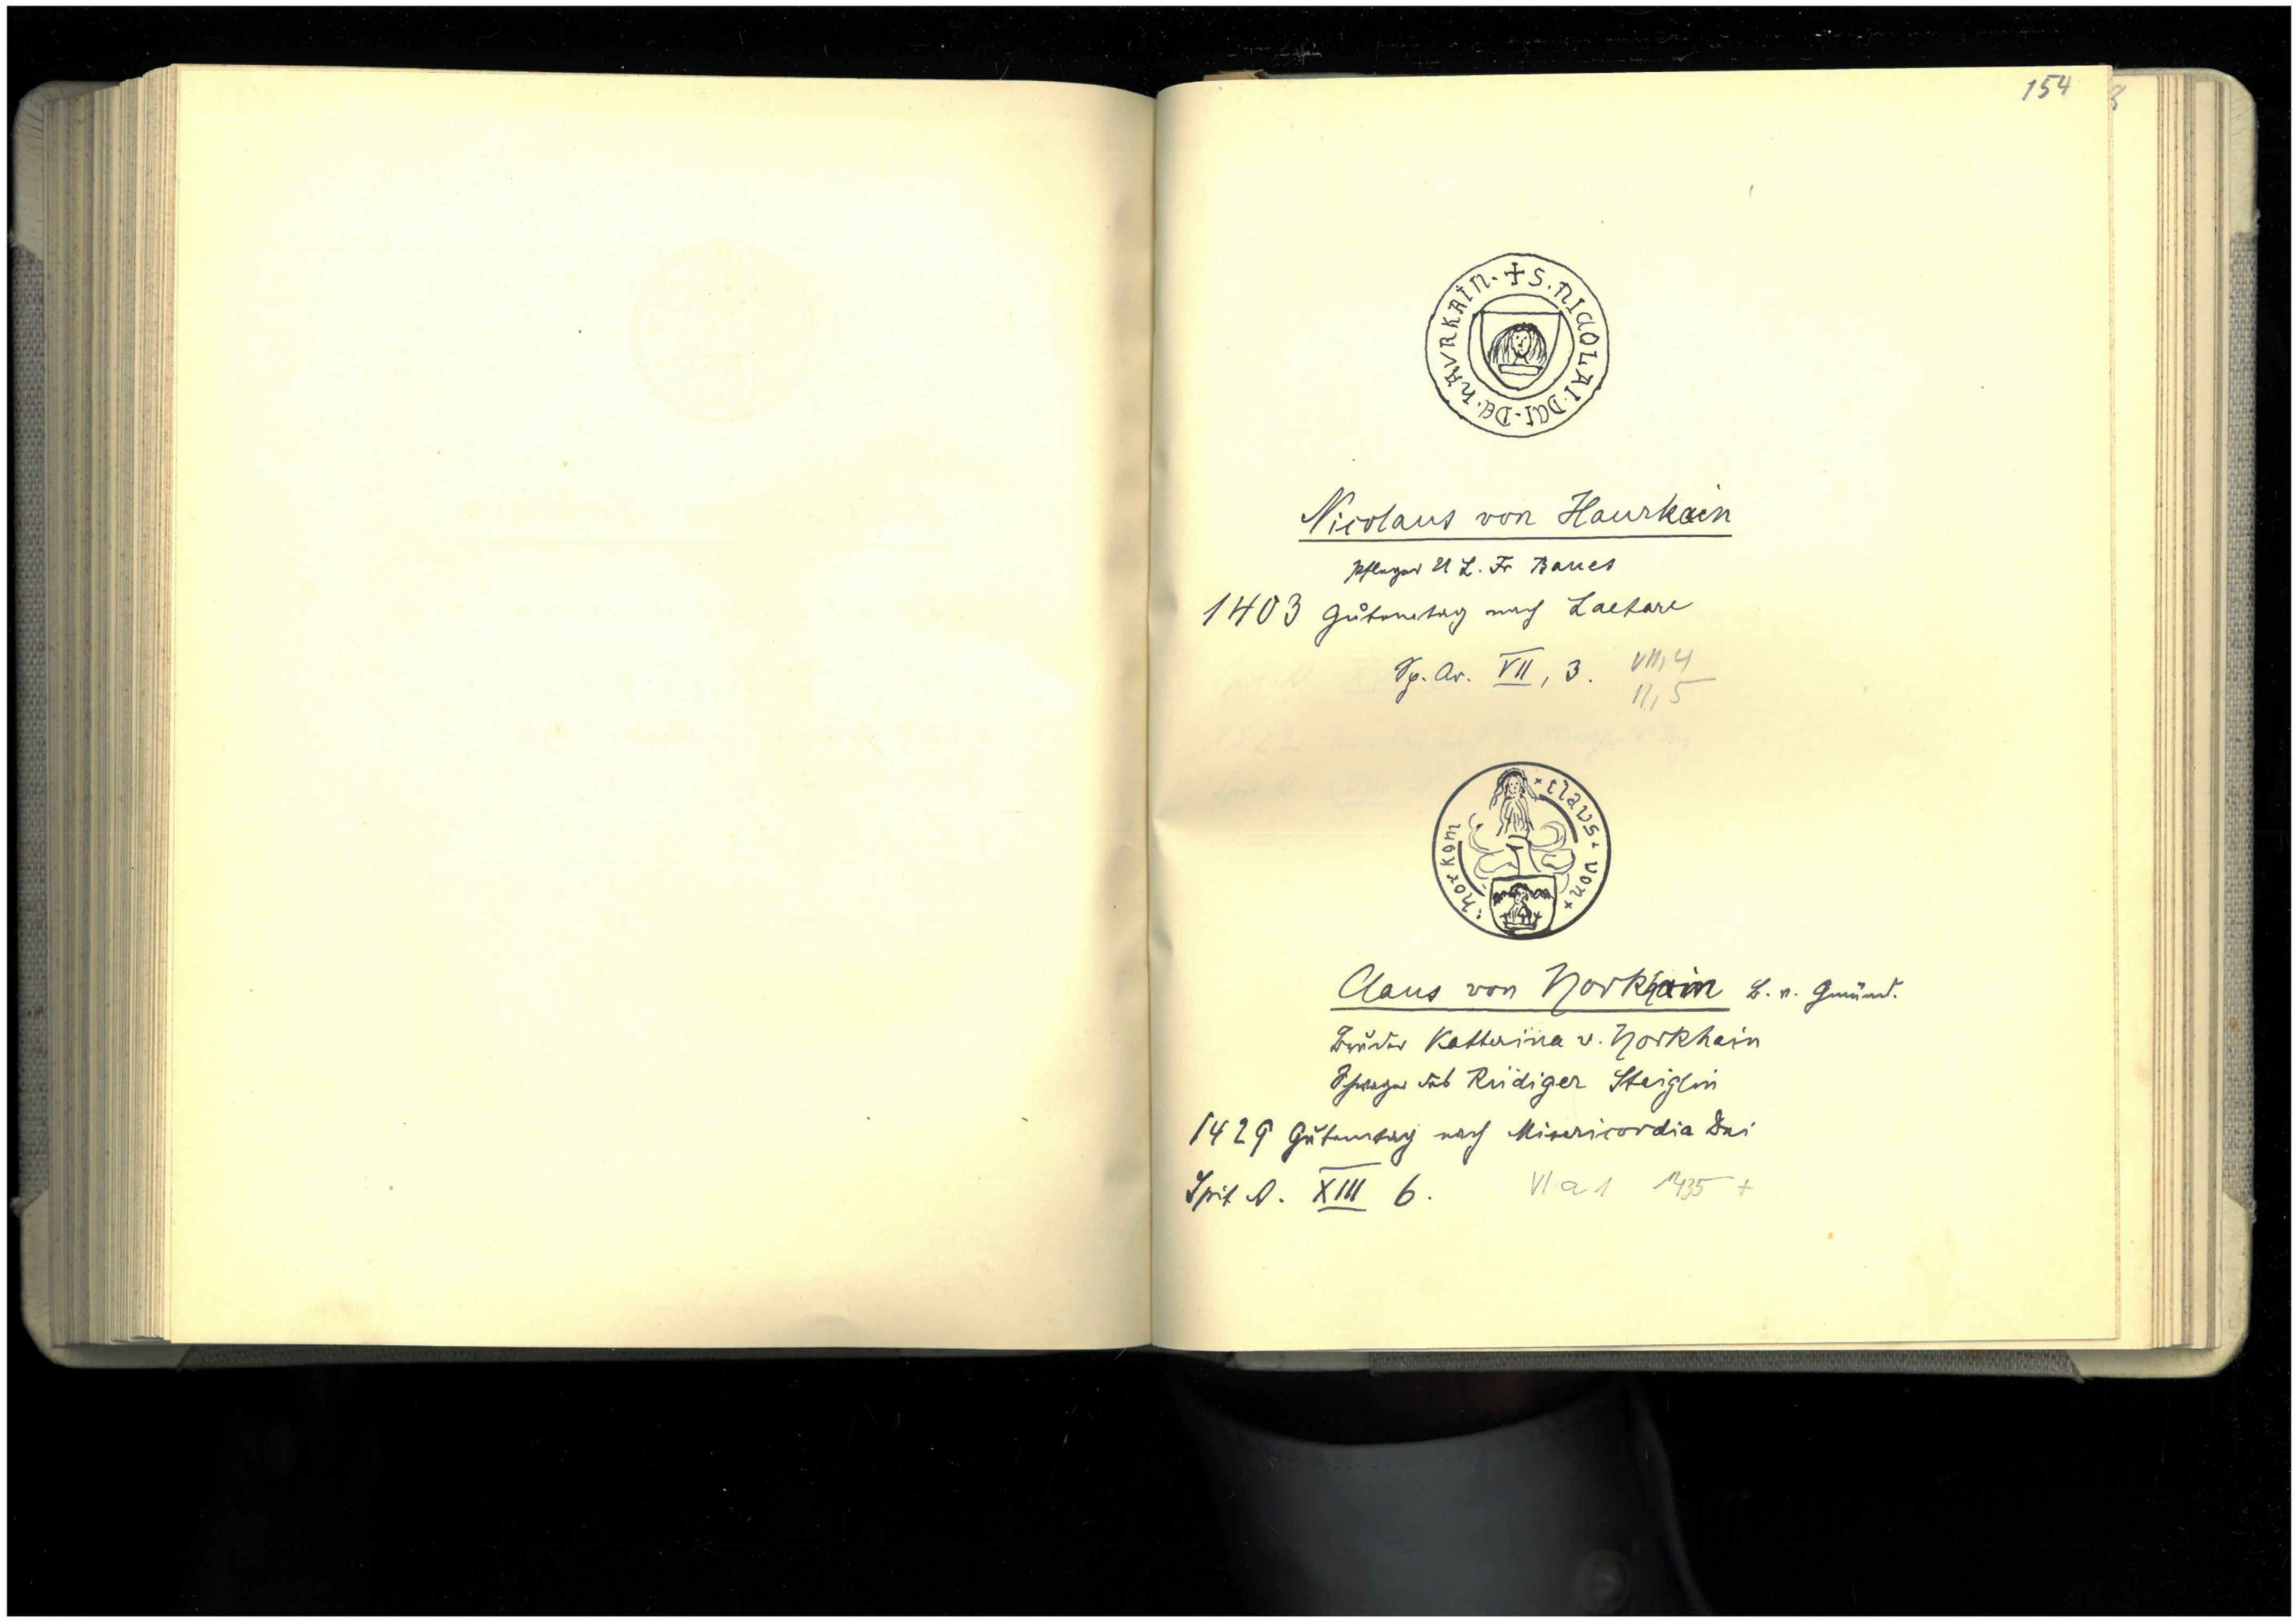 154
+ S. NICOLAI · DCI · DE · HAVRKAIN ·
Nicolaus von Haurkain
Pfleger U L. Fr Baues
1403 Gůtemtag nach Laetare
Sp. Ar. VII, 3. VII, 4
II, 5
+ claus + von + horkom
Claus von Horkhain B. v. Gmünd.
Bruder Katterina v. Horkhain
Schwager des Rüdiger Steiglin
1429 Gůtemtag nach Misericordia Dei
Spit A. XIII 6. VI a 1 1435 +